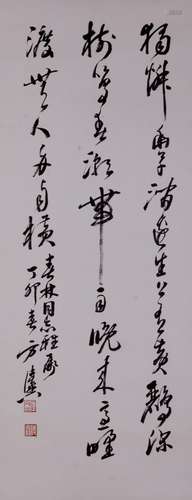 獨憐幽草澗邊生上有黃鸝深
樹鳴春潮帶雨晚來急野
渡無人舟自橫
春林同志雅屬
丁卯春方